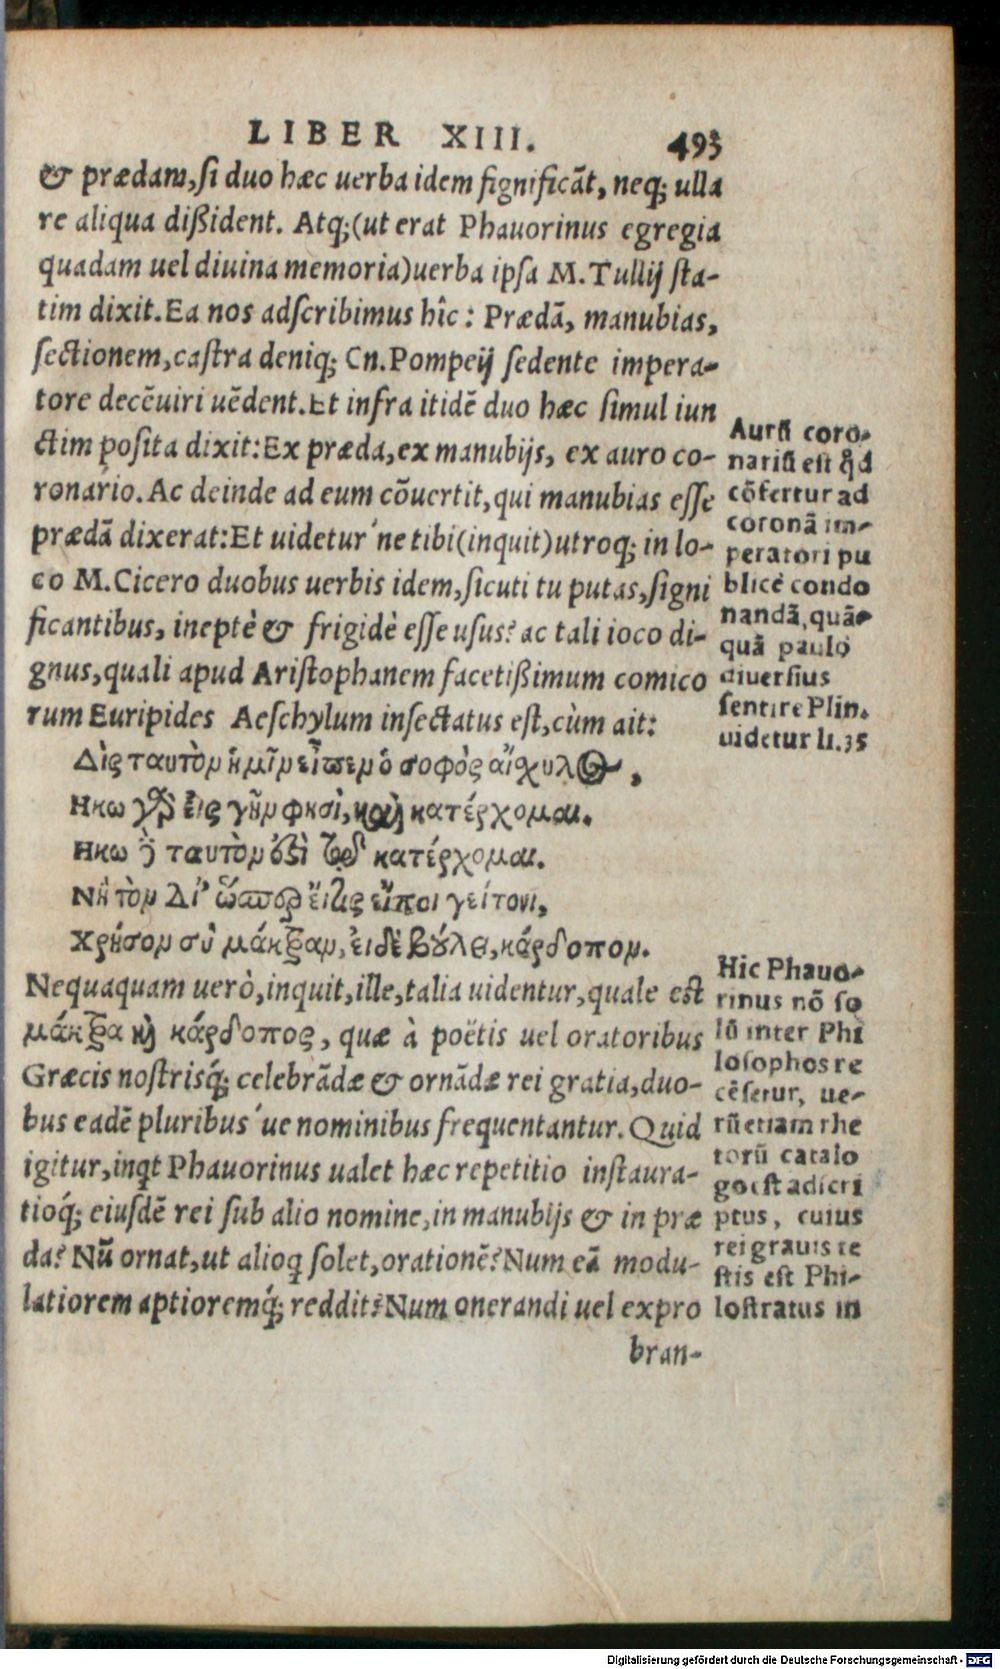 LIBER XIII. 493
& prædam, si duo hæc uerba idem significāt, neq; ulla
re aliqua dißident. Atq; (ut erat Phauorinus egregia
quadam uel diuina memoria) uerba ipsa M. Tullij sta-
tim dixit. Ea nos adscribimus hîc: Prædā, manubias,
sectionem, castra deniq; Cn. Pompeij sedente impera-
tore decēuiri uēdent. Et infra itidē duo hæc simul iun
ctim posita dixit: Ex præda, ex manubijs, ex auro co-
ronario. Ac deinde ad eum cōuertit, qui manubias esse
prædā dixerat: Et uidetur ́ne tibi (inquit) utroq; in lo-
co M. Cicero duobus uerbis idem, sicuti tu putas, signi
ficantibus, ineptè & frigidè esse usus? ac tali ioco di-
gnus, quali apud Aristophanem facetißimum comico
rum Euripides Aeschylum insectatus est, cùm ait:
Δὶς ταυτὸν ἡμῖν εἶπεν ὁ σοφὸς αἴχυλος,
Ηκω γὰρ εἰς γῆν φησὶ, καὶ κατέρχομαι.
Ηκω δὲ ταυτὸν ὀξὶ τῷδε κατέρχομαι.
Νὴ τὸν Δί' ὥσπερ εἴτις εἴποι γείτονι,
Χρῆσον σὺ μάκτραν, ειδὲ βούλει, κάρδοπον.
Nequaquam uerò, inquit, ille, talia uidentur, quale est
μάκτρα καὶ κάρδοπος, quæ à poëtis uel oratoribus
Græcis nostrisq́; celebrādæ & ornādæ rei gratia, duo-
bus eadē pluribus ́ue nominibus frequentantur. Quid
igitur, inqt Phauorinus ualet hæc repetitio instaura-
tioq́; eiusdē rei sub alio nomine, in manubijs & in præ
da? Nū ornat, ut alioq solet, orationē? Num eā modu-
latiorem aptioremq́; reddit? Num onerandi uel expro
bran-
Aurū coro-
nariū est qd
cōfertur ad
coronā im-
peratori pu
blicè condo
nandā, quā-
quā paulo
diuersius
sentire Plin.
uidetur li. 35
Hic Phauo-
rinus nō so
lū inter Phi
losophos re
cēsetur, ue-
rū etiam rhe
torū catalo
go est adscri
ptus, cuius
rei grauis te
stis est Phi-
lostratus in
Digitalisierung gefördert durch die Deutsche Forschungsgemeinschaft - DFG